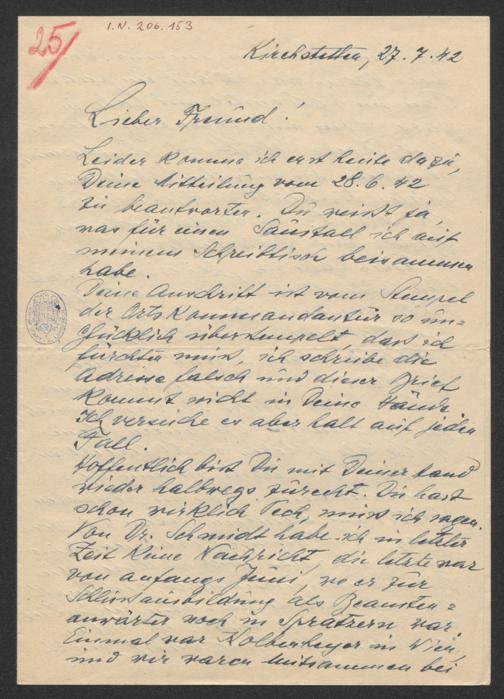 25/
I.N. 206.153
Kirchstetten, 27.7.42
Lieber Freund!
Leider komme ich erst heute dazu,
Deine Mitteilung vom 28.6.42
zu beantworten. Du weißt ja,
was für einen Saustall ich auf
meinem Schreibtisch beisammen
habe.
Deine Anschrift ist vom Stempel
der Ortskommandantur so un=
glücklich überstempelt, dass ich
fürchten muss, ich schreibe die
Adresse falsch und dieser Brief
kommt nicht in Deine Hände.
Ich versuche es aber halt auf jeden
Fall.
Hoffentlich bist Du mit Deiner Hand
wieder halbwegs zurecht. Du hast
schon wirklich Pech, muss ich sagen.
Von Dr. Schmidt habe ich in letzter
Zeit keine Nachricht, die letzte war
von anfangs Juni, wo er zur
Schlussausbildung als Beamten=
anwärter noch in Spratzern war.
Einmal war Kolbenheyer in Wien,
und wir waren mitsammen bei